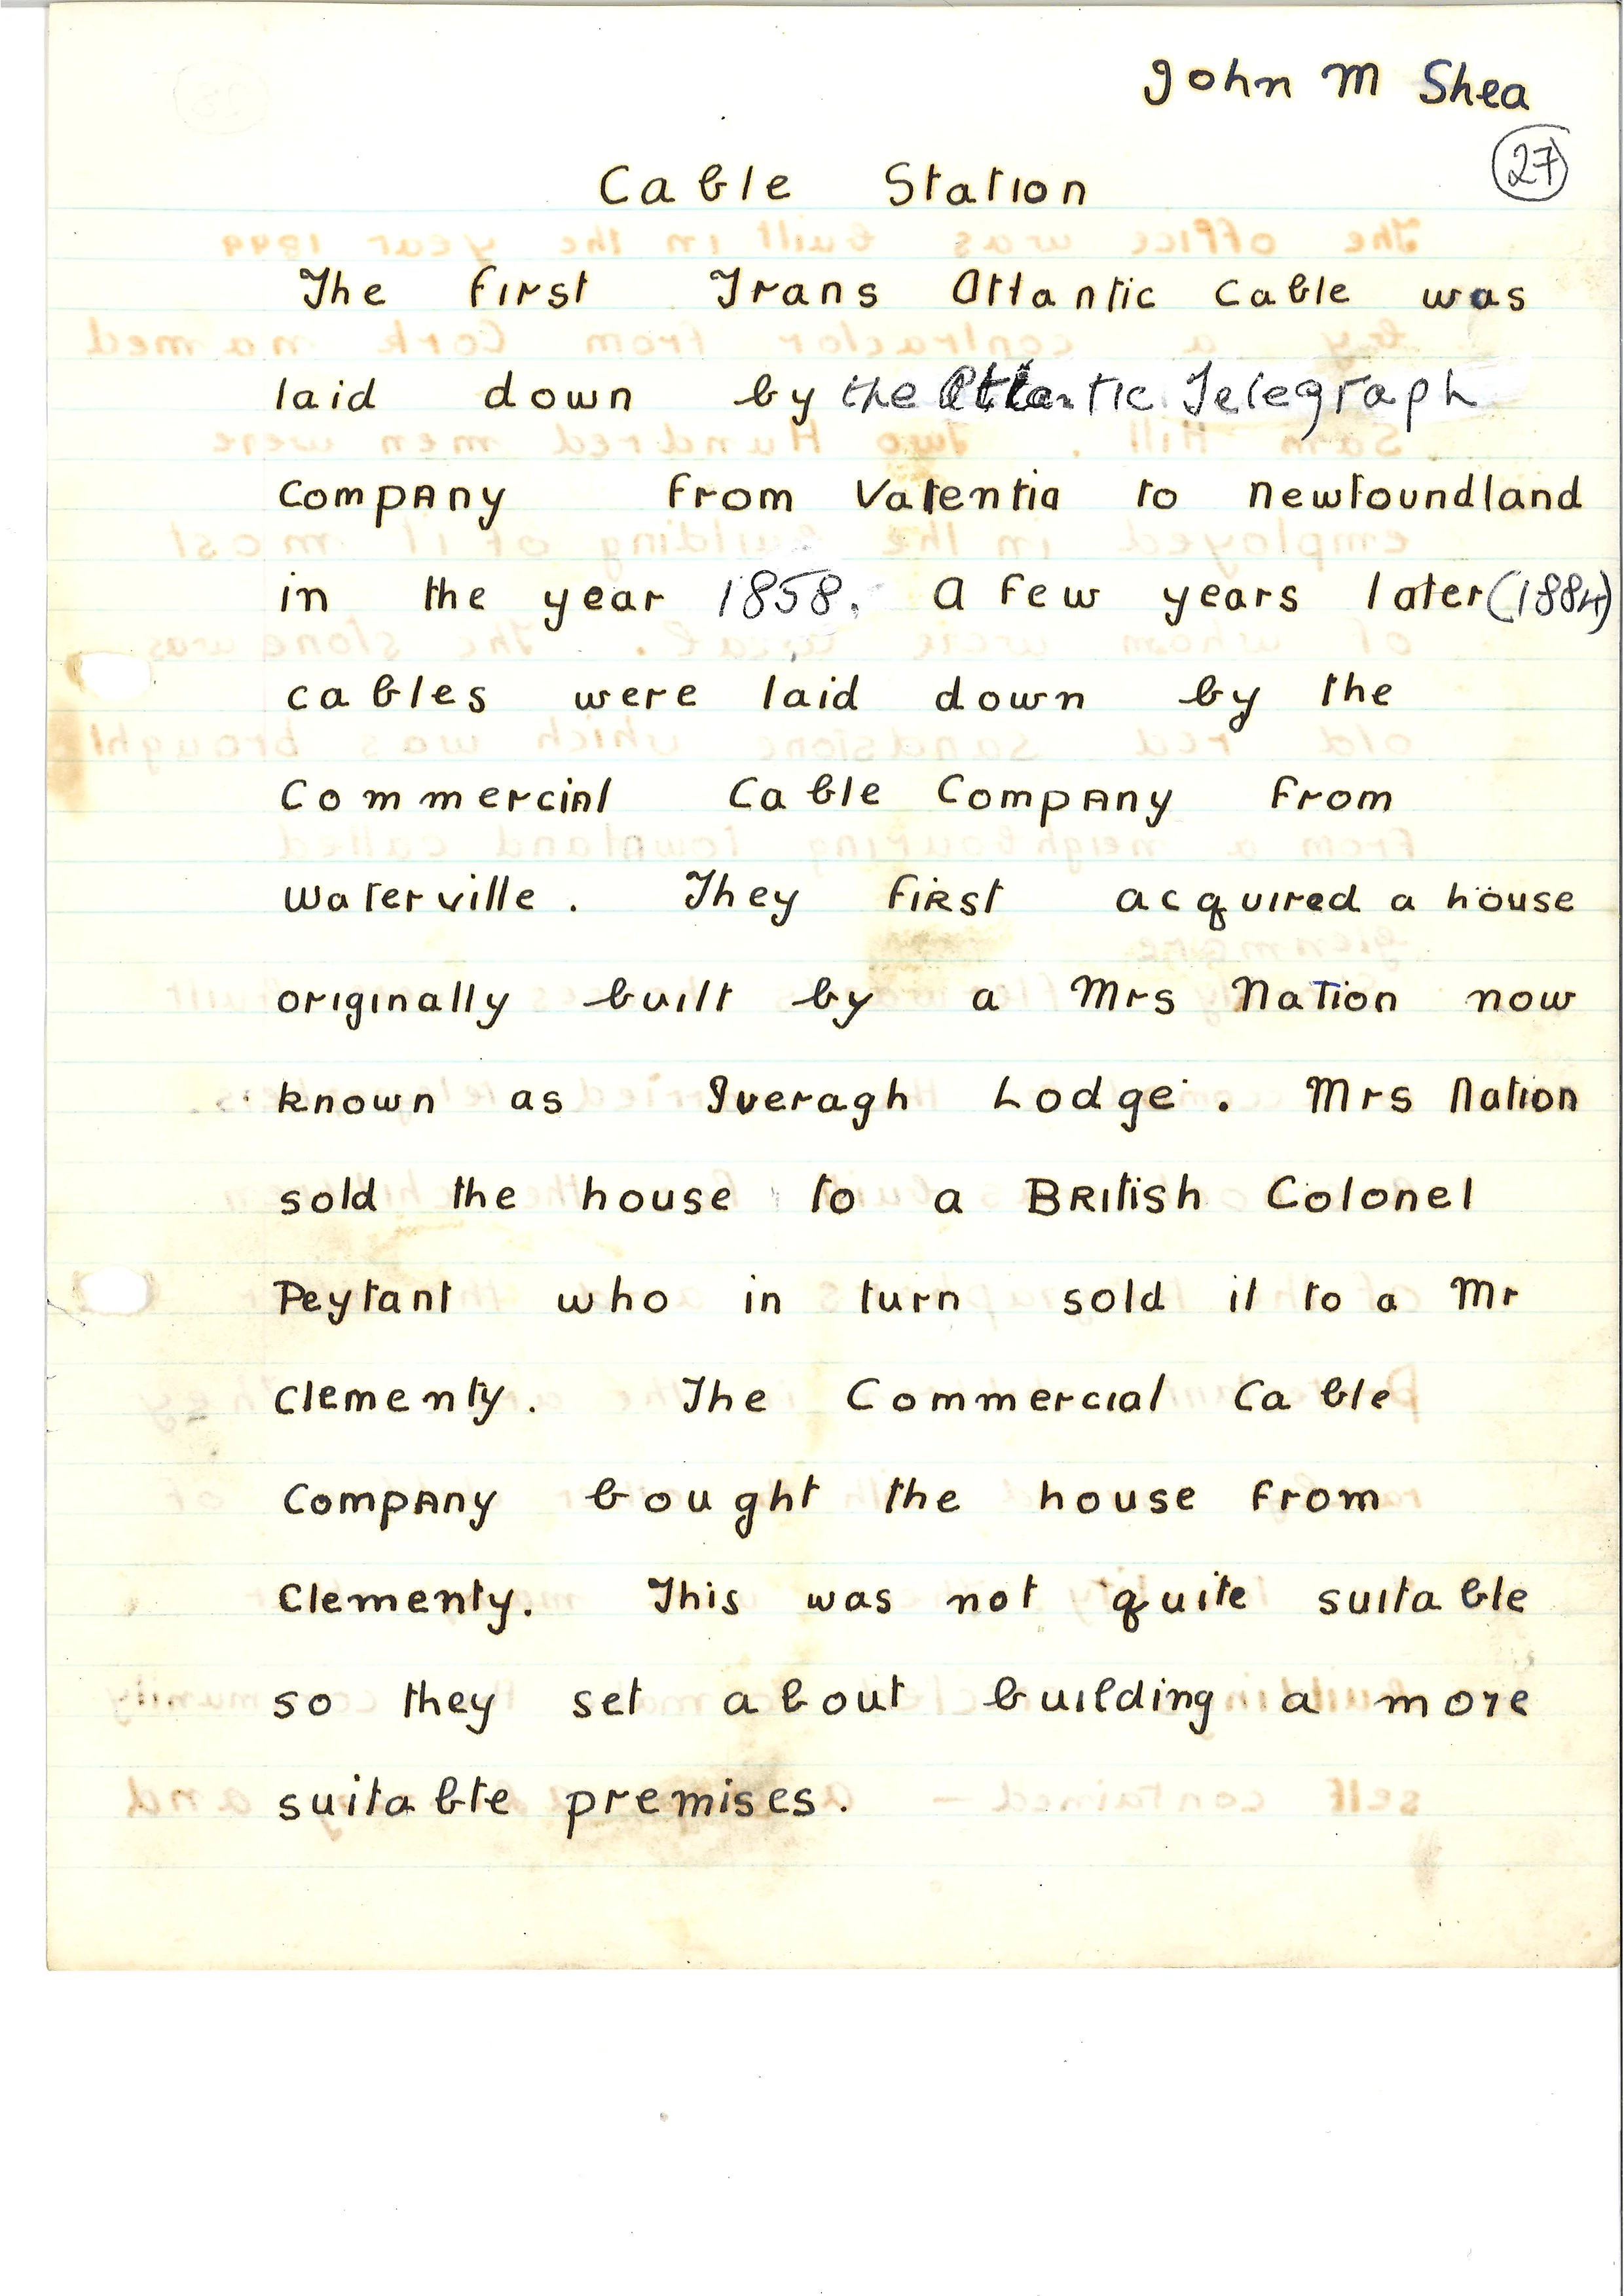 John M Shea
27
Cable Station
The first Trans Atlantic cable was
laid down by the Atlantic Telegraph
Company from Valentia to Newfoundland
in the year 1858. A few years later (1884)
cables were laid down by the
Commercial Cable Company from
Waterville. They first acquired a house
originally built by a Mrs Nation now
known as Iveragh Lodge. Mrs Nation
sold the house to a British Colonel
Peytant who in turn sold it to a Mr
Clementy. The Commercial Cable
Company bought the house from
Clementy. This was not quite suitable
so they set about building a more
suitable premises.